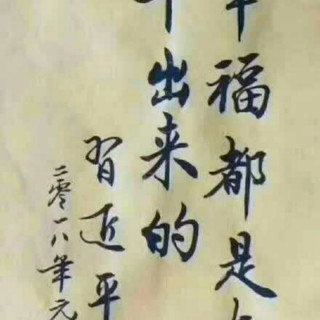 幸福都是
斗出来的
習近平
二零一八年元